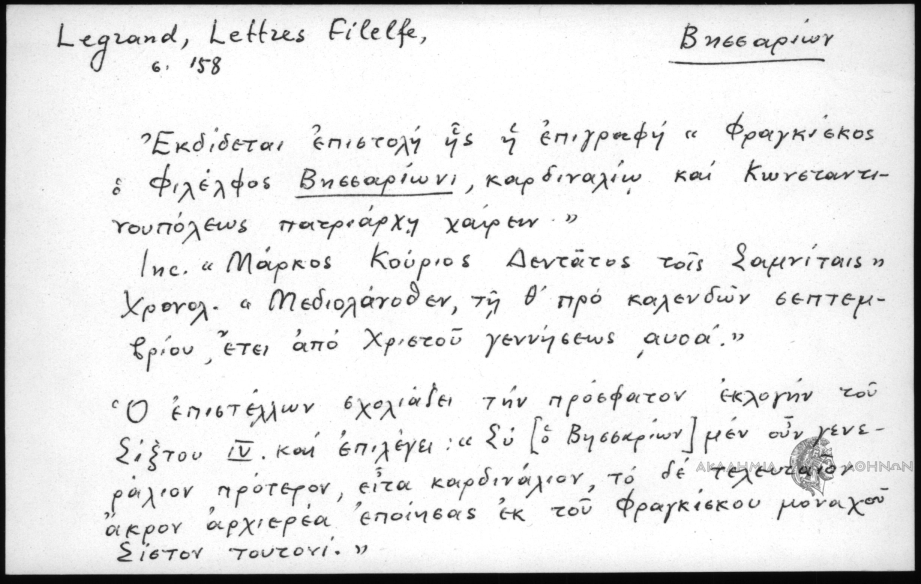 Legrand, Lettres Filelfe,
Βησσαρίων
σ. 158
Ἐκδίδεται ἐπιστολή ἧς ἡ ἐπιγραφή "Φραγκίσκος
ὁ Φιλέλφος Βησσαρίωνι, καρδιναλίῳ καί Κωνσταντι-
νουπόλεως πατριάρχῃ χαίρειν."
Inc. "Μάρκος Κούριος Δεντᾶτος τοῖς Σαμνίταις"
Χρονολ. "Μεδιολάνοθεν, τῇ θ' πρό καλενδῶν σεπτεμ-
βρίου, ἔτει ἀπό Χριστοῦ γεννήσεως ͵αυοά."
Ὁ ἐπιστέλλων σχολιάζει τήν πρόσφατον ἐκλογήν τοῦ
Σίξτου IV. καί ἐπιλέγει: "Σύ [ὁ Βησσαρίων] μέν οὖν γενε-
ράλιον πρότερον, εἶτα καρδινάλιον, τό δέ τελευταῖον
ἄκρον ἀρχιερέα ἐποίησας ἐκ τοῦ Φραγκίσκου μοναχοῦ
Σίστον τουτονί."
ΑΚΑΔΗΜΙΑ ΑΘΗΝΩΝ